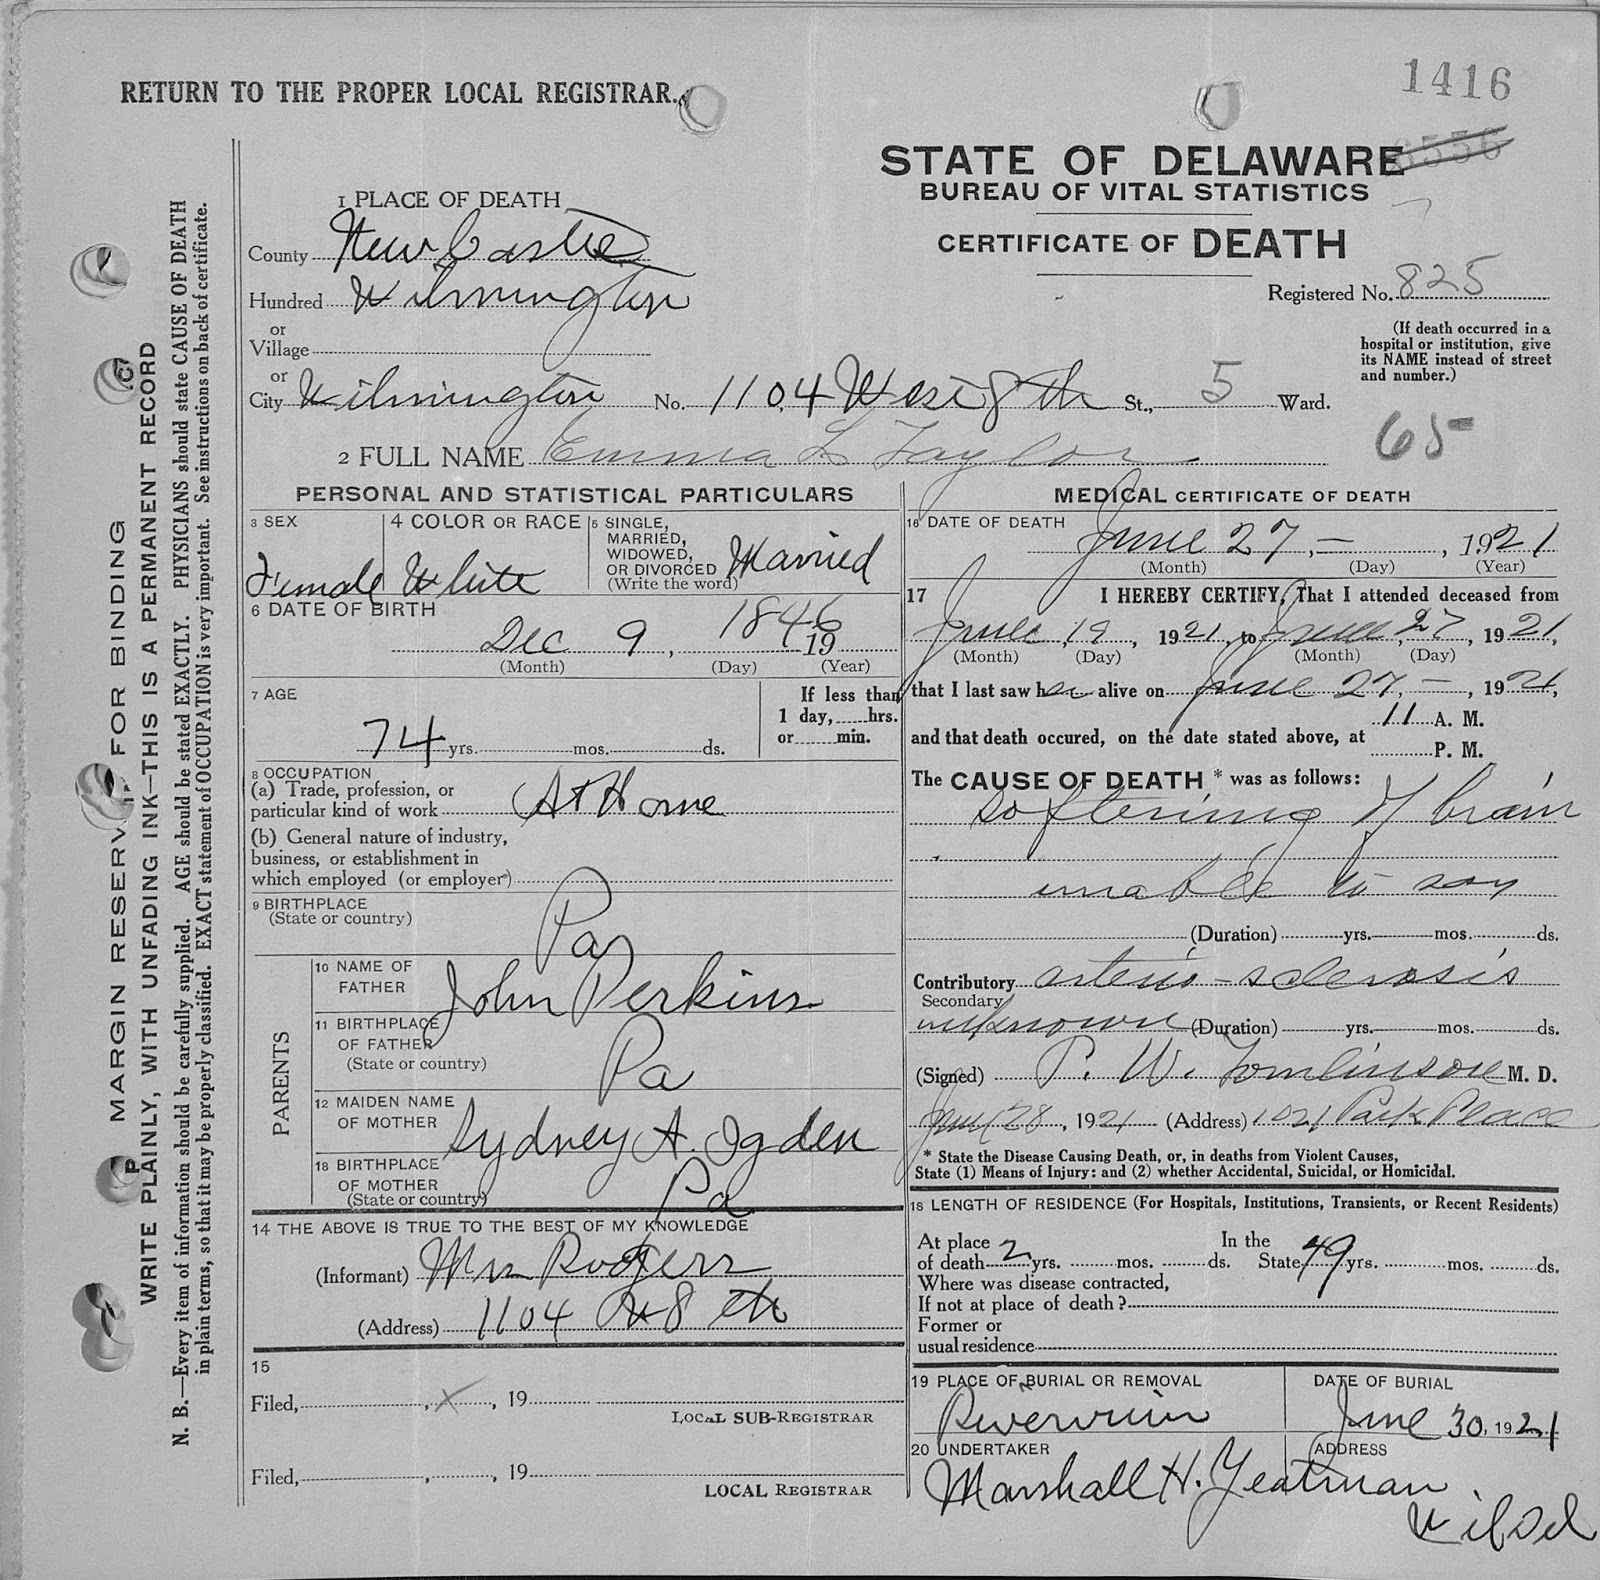 1416
RETURN TO THE PROPER LOCAL REGISTRAR.
6556
STATE OF DELAWARE
BUREAU OF VITAL STATISTICS
CERTIFICATE OF DEATH
Registered No. 825
(If death occurred in a
hospital or institution, give
its NAME instead of street
and number.)
65
MARGIN RESERVED FOR BINDING
WRITE PLAINLY, WITH UNFADING INK—THIS IS A PERMANENT RECORD
N. B.—Every item of information should be carefully supplied. AGE should be stated EXACTLY. PHYSICIANS should state CAUSE OF DEATH
in plain terms, so that it may be properly classified. EXACT statement of OCCUPATION is very important. See instructions on back of certificate.
1 PLACE OF DEATH
County New Castle
Hundred Wilmington
or
Village
or
City Wilmington No. 1104 West 8th St., 5 Ward.
2 FULL NAME Emma L Taylor
PERSONAL AND STATISTICAL PARTICULARS
3 SEX
Female
4 COLOR OR RACE
White
5 SINGLE,
MARRIED,
WIDOWED,
OR DIVORCED
(Write the word)
Married
6 DATE OF BIRTH
Dec 9, 1846 19
(Month) (Day) (Year)
7 AGE
74 yrs. mos. ds.
If less than
1 day, hrs.
or min.
8 OCCUPATION
(a) Trade, profession, or
particular kind of work At Home
(b) General nature of industry,
business, or establishment in
which employed (or employer)
9 BIRTHPLACE
(State or country)
Pa
PARENTS
10 NAME OF
FATHER
John Perkins
11 BIRTHPLACE
OF FATHER
(State or country)
Pa
12 MAIDEN NAME
OF MOTHER
Sydney A. Ogden
18 BIRTHPLACE
OF MOTHER
(State or country)
Pa
14 THE ABOVE IS TRUE TO THE BEST OF MY KNOWLEDGE
(Informant) Mrs Rodgers
(Address) 1104 W 8 th
15
Filed, , X , 19
LOCAL SUB-REGISTRAR
Filed, , , 19
LOCAL REGISTRAR
MEDICAL CERTIFICATE OF DEATH
16 DATE OF DEATH
June 27, — , 1921
(Month) (Day) (Year)
17 I HEREBY CERTIFY, That I attended deceased from
June 19, 1921, to June 27, 1921,
(Month) (Day) (Month) (Day)
that I last saw her alive on June 27, — , 1921,
and that death occured, on the date stated above, at 11 A. M.
P. M.
The CAUSE OF DEATH * was as follows:
softening of brain
unable to say
(Duration) yrs. mos. ds.
Contributory arterio-sclerosis
Secondary
unknown (Duration) yrs. mos. ds.
(Signed) P. W. Tomlinson M. D.
June 28, 1921 (Address) 1021 Park Place
* State the Disease Causing Death, or, in deaths from Violent Causes,
State (1) Means of Injury: and (2) whether Accidental, Suicidal, or Homicidal.
18 LENGTH OF RESIDENCE (For Hospitals, Institutions, Transients, or Recent Residents)
At place
of death 2 yrs. mos. ds.
In the
State 49 yrs. mos. ds.
Where was disease contracted,
If not at place of death?
Former or
usual residence
19 PLACE OF BURIAL OR REMOVAL
Riverview
DATE OF BURIAL
June 30, 1921
20 UNDERTAKER
Marshall H. Yeatman
ADDRESS